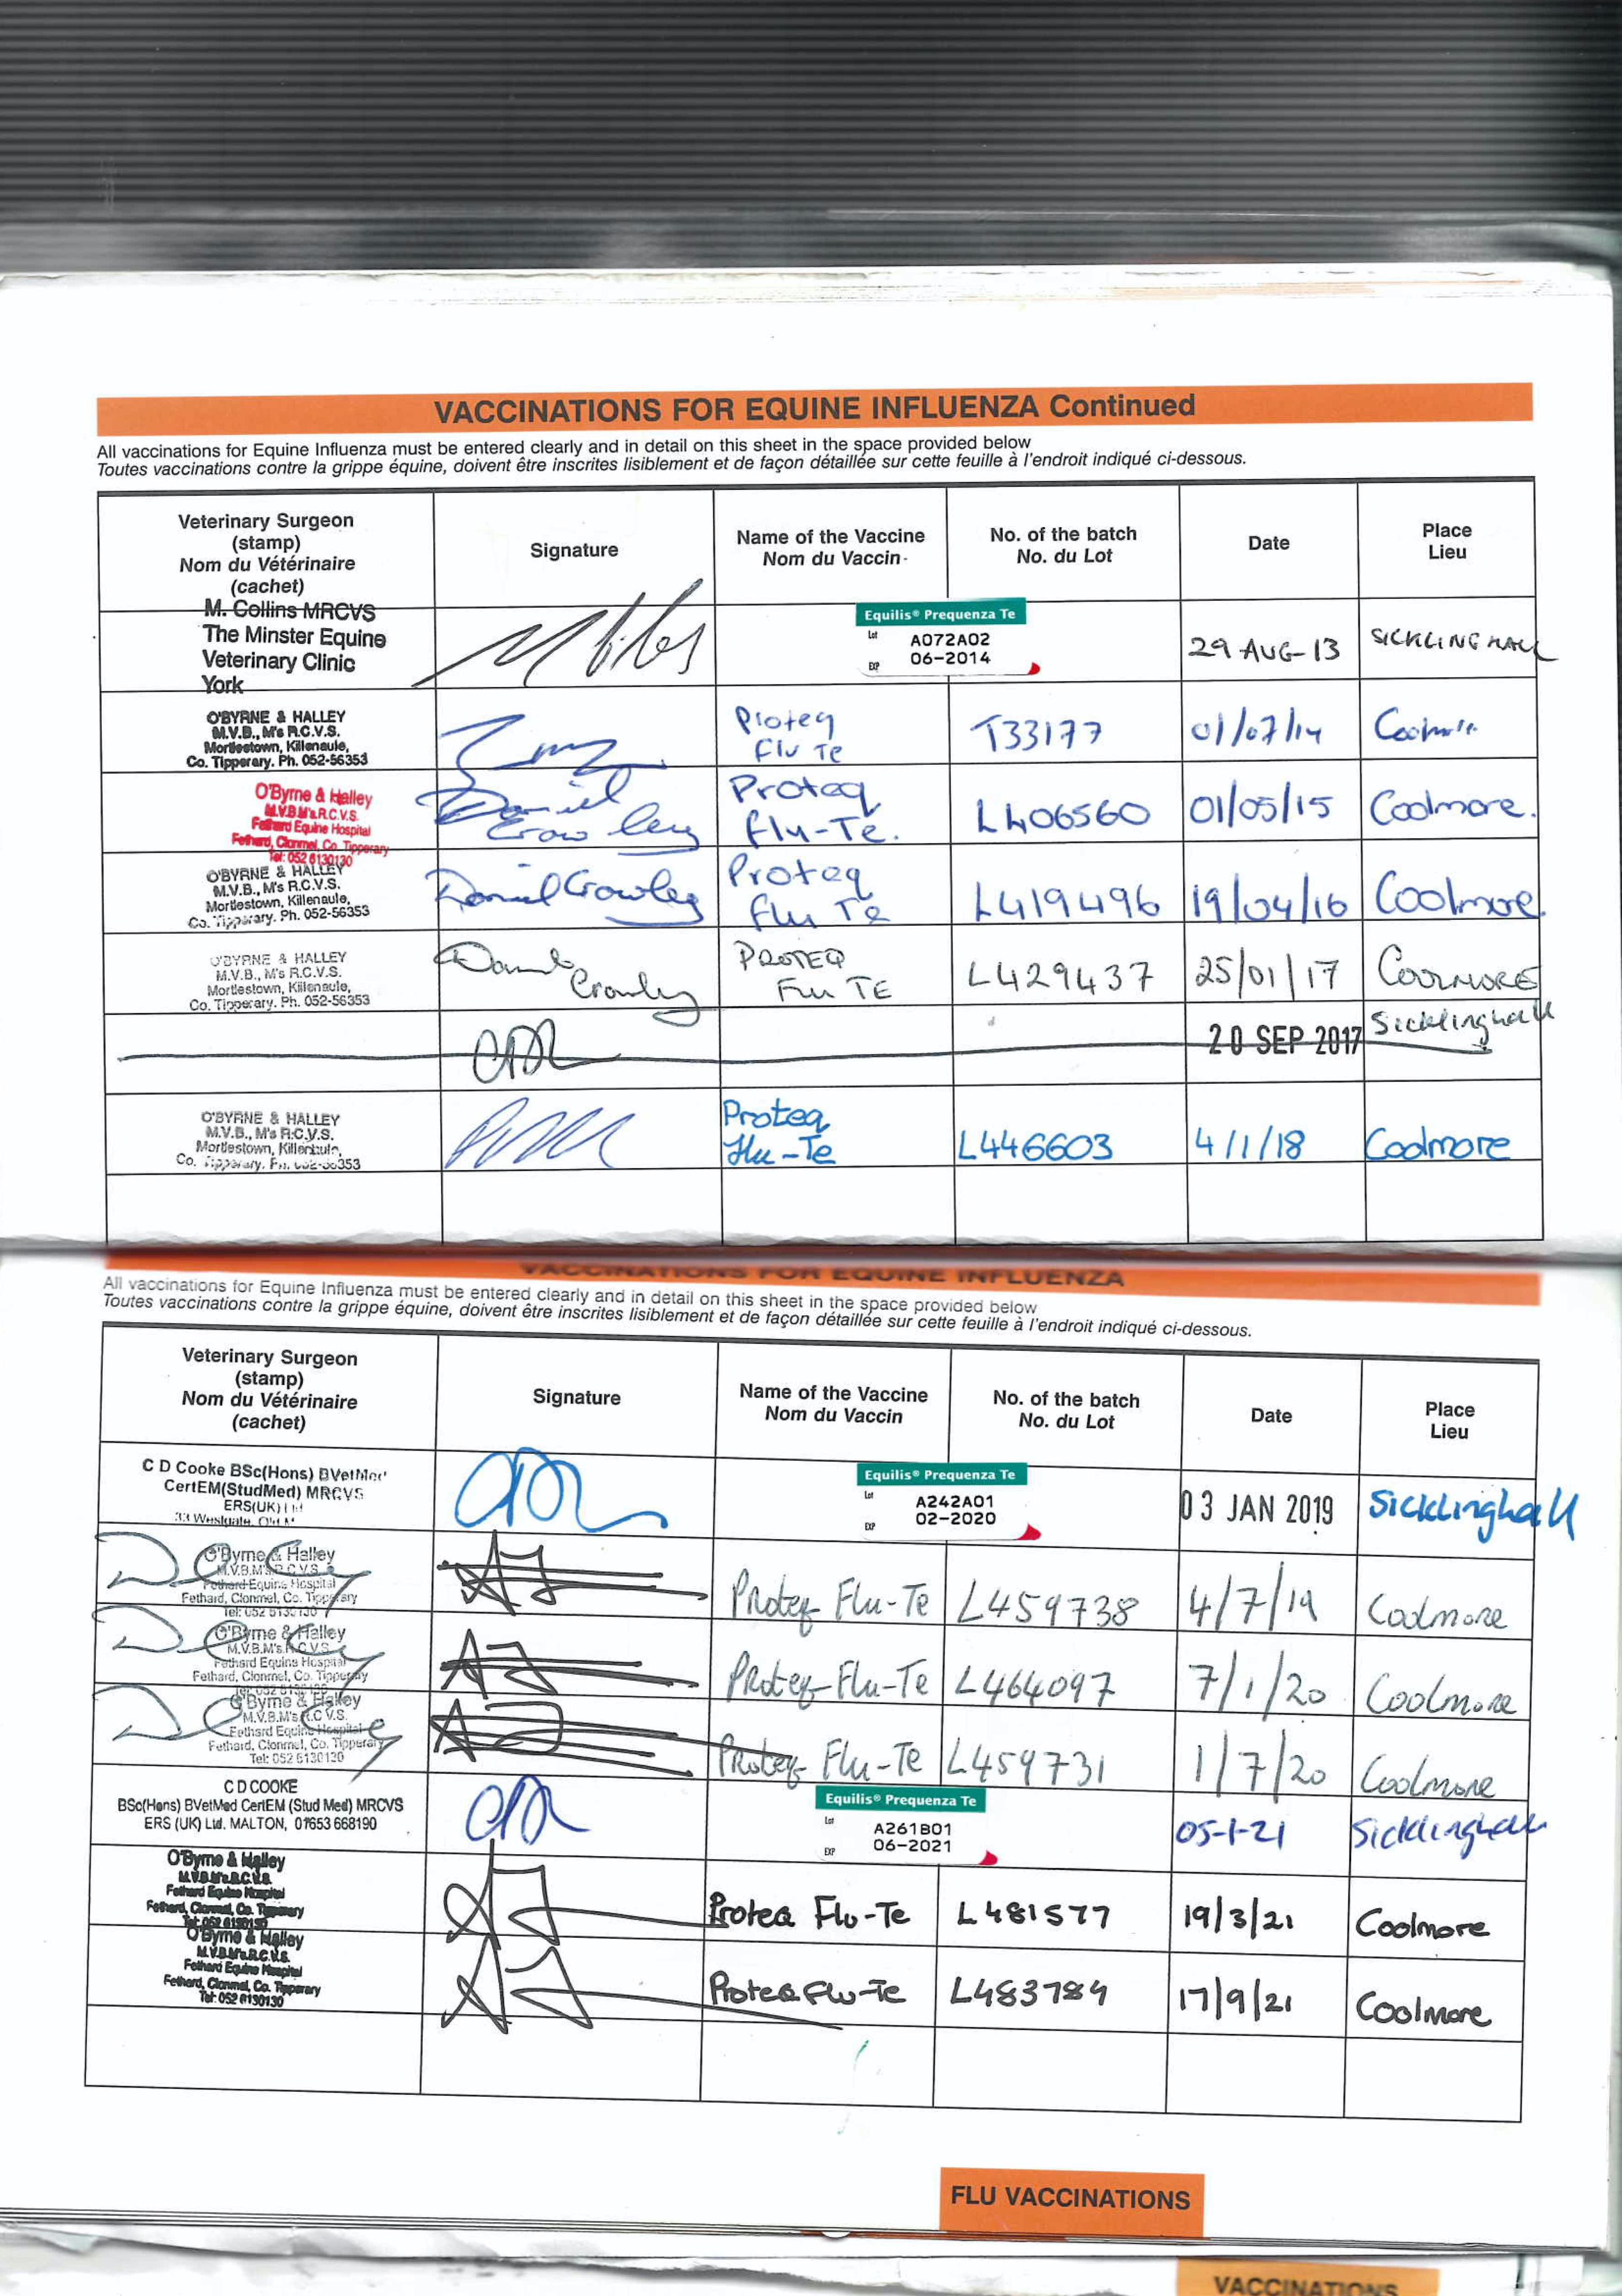 VACCINATIONS FOR EQUINE INFLUENZA Continued
All vaccinations for Equine Influenza must be entered clearly and in detail on this sheet in the space provided below
Toutes vaccinations contre la grippe équine, doivent être inscrites lisiblement et de façon détaillée sur cette feuille à l'endroit indiqué ci-dessous.
Veterinary Surgeon
(stamp)
Nom du Vétérinaire
(cachet)
Signature
Name of the Vaccine
Nom du Vaccin
No. of the batch
No. du Lot
Date
Place
Lieu
M. Collins MRCVS
The Minster Equine
Veterinary Clinic
York
Equilis® Prequenza Te
Lot A072A02
EXP 06-2014
29 AUG-13
SICKLINGHALL
O'BYRNE & HALLEY
M.V.B., M's R.C.V.S.
Mortlestown, Killenaule,
Co. Tipperary. Ph. 052-56353
Proteq
Flu Te
T33177
01/07/14
O'Byrne & Halley
M.V.B.M's.R.C.V.S.
Fethard Equine Hospital
Fethard, Clonmel, Co. Tipperary
Tel: 052 6130130
Daniel
Crowley
Proteq
Flu-Te.
L406560
01/05/15
Coolmore.
O'BYRNE & HALLEY
M.V.B., M's R.C.V.S.
Mortlestown, Killenaule,
Co. Tipperary. Ph. 052-56353
Daniel Crowley
Proteq
Flu Te
L419496
19/04/16
Coolmore
O'BYRNE & HALLEY
M.V.B., M's R.C.V.S.
Mortlestown, Killenaule,
Co. Tipperary. Ph. 052-56353
Crowley
PROTEQ
Flu TE
L429437
25/01/17
COOLMORE
20 SEP 2017
Sicklinghall
O'BYRNE & HALLEY
M.V.B., M's R.C.V.S.
Mortlestown, Killenaule,
Co. Tipperary. Ph. 052-56353
Proteq
Flu-Te
L446603
4/1/18
Coolmore
VACCINATIONS FOR EQUINE INFLUENZA
All vaccinations for Equine Influenza must be entered clearly and in detail on this sheet in the space provided below
Toutes vaccinations contre la grippe équine, doivent être inscrites lisiblement et de façon détaillée sur cette feuille à l'endroit indiqué ci-dessous.
Veterinary Surgeon
(stamp)
Nom du Vétérinaire
(cachet)
Signature
Name of the Vaccine
Nom du Vaccin
No. of the batch
No. du Lot
Date
Place
Lieu
C D Cooke BSc(Hons) BVetMed
CertEM(StudMed) MRCVS
ERS(UK)
Equilis® Prequenza Te
Lot A242A01
EXP 02-2020
03 JAN 2019
Sicklinghall
O'Byrne & Halley
M.V.B.M's.R.C.V.S.
Fethard Equine Hospital
Fethard, Clonmel, Co. Tipperary
Tel: 052 6130130
Proteq Flu-Te
L459738
4/7/19
Coolmore
O'Byrne & Halley
M.V.B.M's.R.C.V.S.
Fethard Equine Hospital
Fethard, Clonmel, Co. Tipperary
Proteq-Flu-Te
L464097
7/1/20
Coolmore
O'Byrne & Halley
M.V.B.M's.R.C.V.S.
Fethard Equine Hospital
Fethard, Clonmel, Co. Tipperary
Tel: 052 6130130
Proteq Flu-Te
L459731
1/7/20
Coolmore
C D COOKE
BSc(Hons) BVetMed CertEM (Stud Med) MRCVS
ERS (UK) Ltd. MALTON, 01653 668190
Equilis® Prequenza Te
Lot A261B01
EXP 06-2021
05-1-21
Sicklinghall
O'Byrne & Halley
M.V.B.M's.R.C.V.S.
Fethard Equine Hospital
Fethard, Clonmel, Co. Tipperary
Tel: 052 6130130
Proteq Flu-Te
L481577
19/3/21
Coolmore
O'Byrne & Halley
M.V.B.M's.R.C.V.S.
Fethard Equine Hospital
Fethard, Clonmel, Co. Tipperary
Tel: 052 6130130
Proteq Flu-Te
L483784
17/9/21
Coolmore
FLU VACCINATIONS
VACCINATIONS